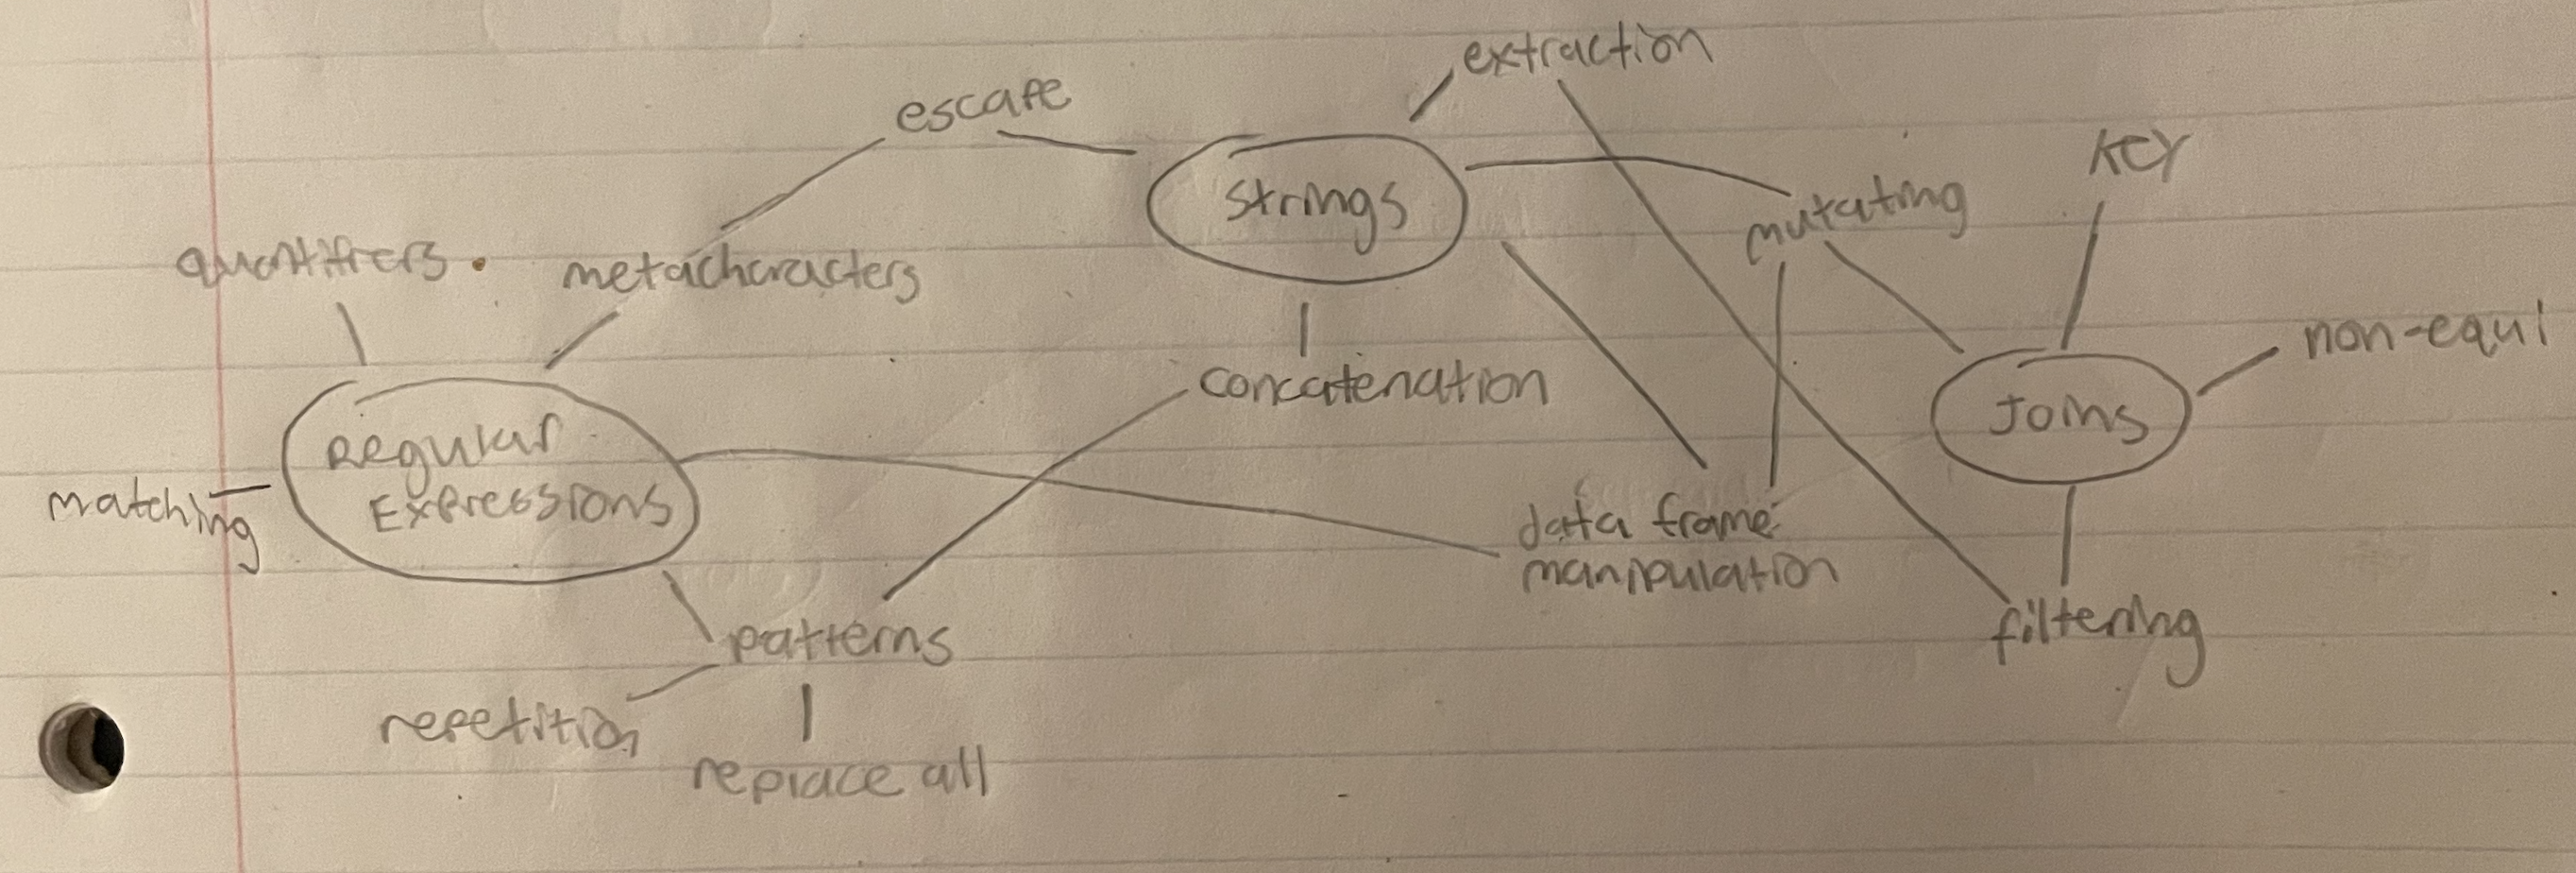 extraction
escape
KEY
strings
mutating
quantifiers
metacharacters
non-equi
concatenation
Joins
Regular
Expressions
matching
data frame
manipulation
patterns
filtering
repetition
replace all